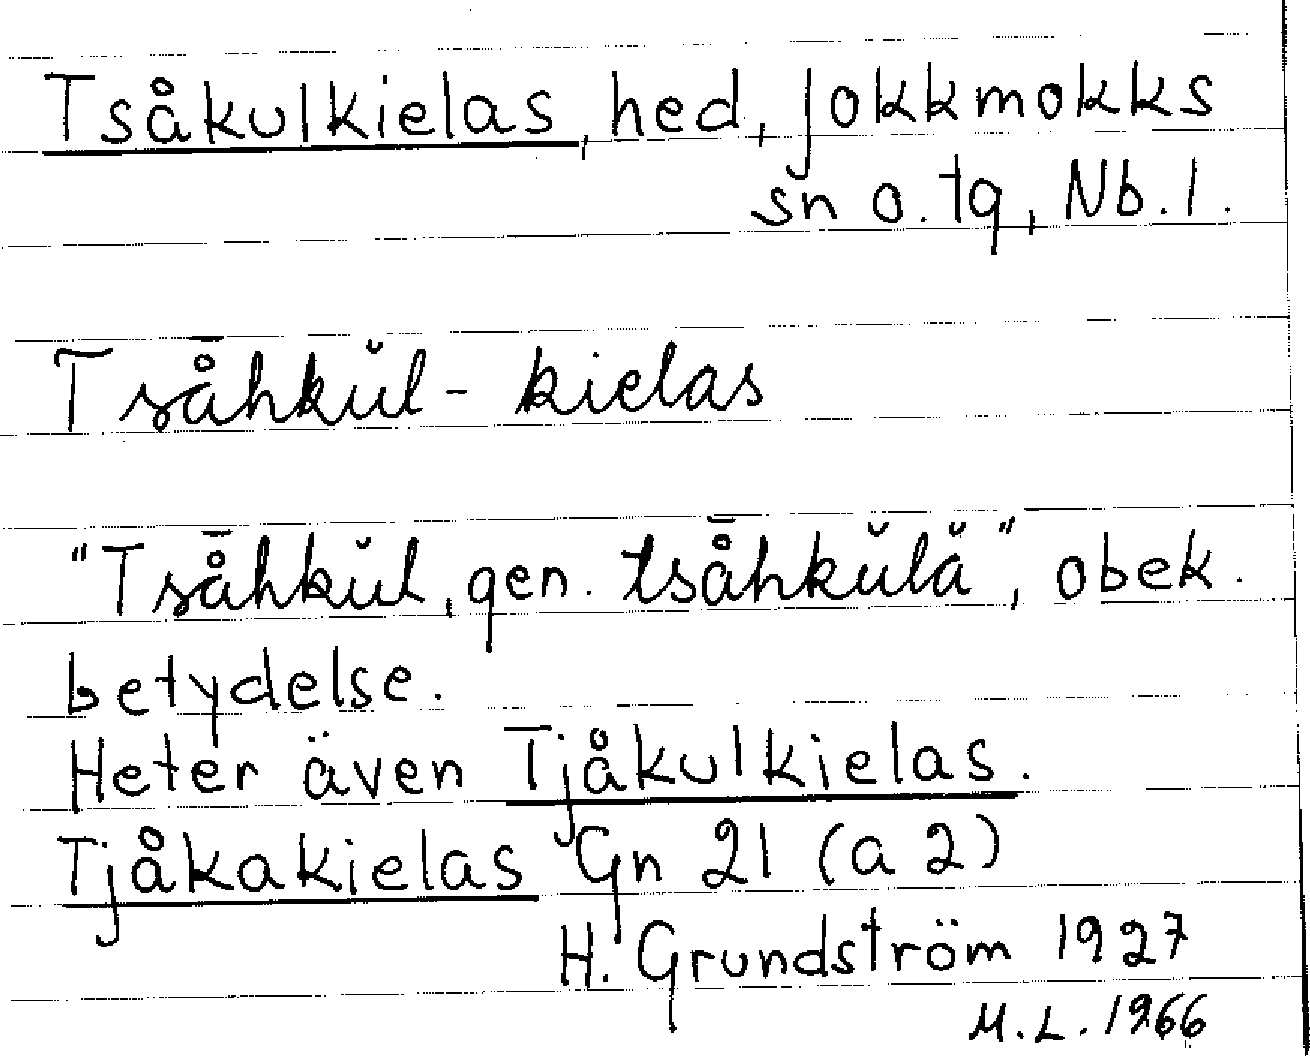 Tsåkulkielas, hed, Jokkmokks
sn o. tg, Nb. l.
Tså̄hkŭl - kielas
"Tså̄hkŭl, gen. tså̄hkŭlă", obek.
betydelse.
Heter även Tjåkulkielas.
Tjåkakielas Gn 21 (a 2)
H. Grundström 1927
M.L. 1966